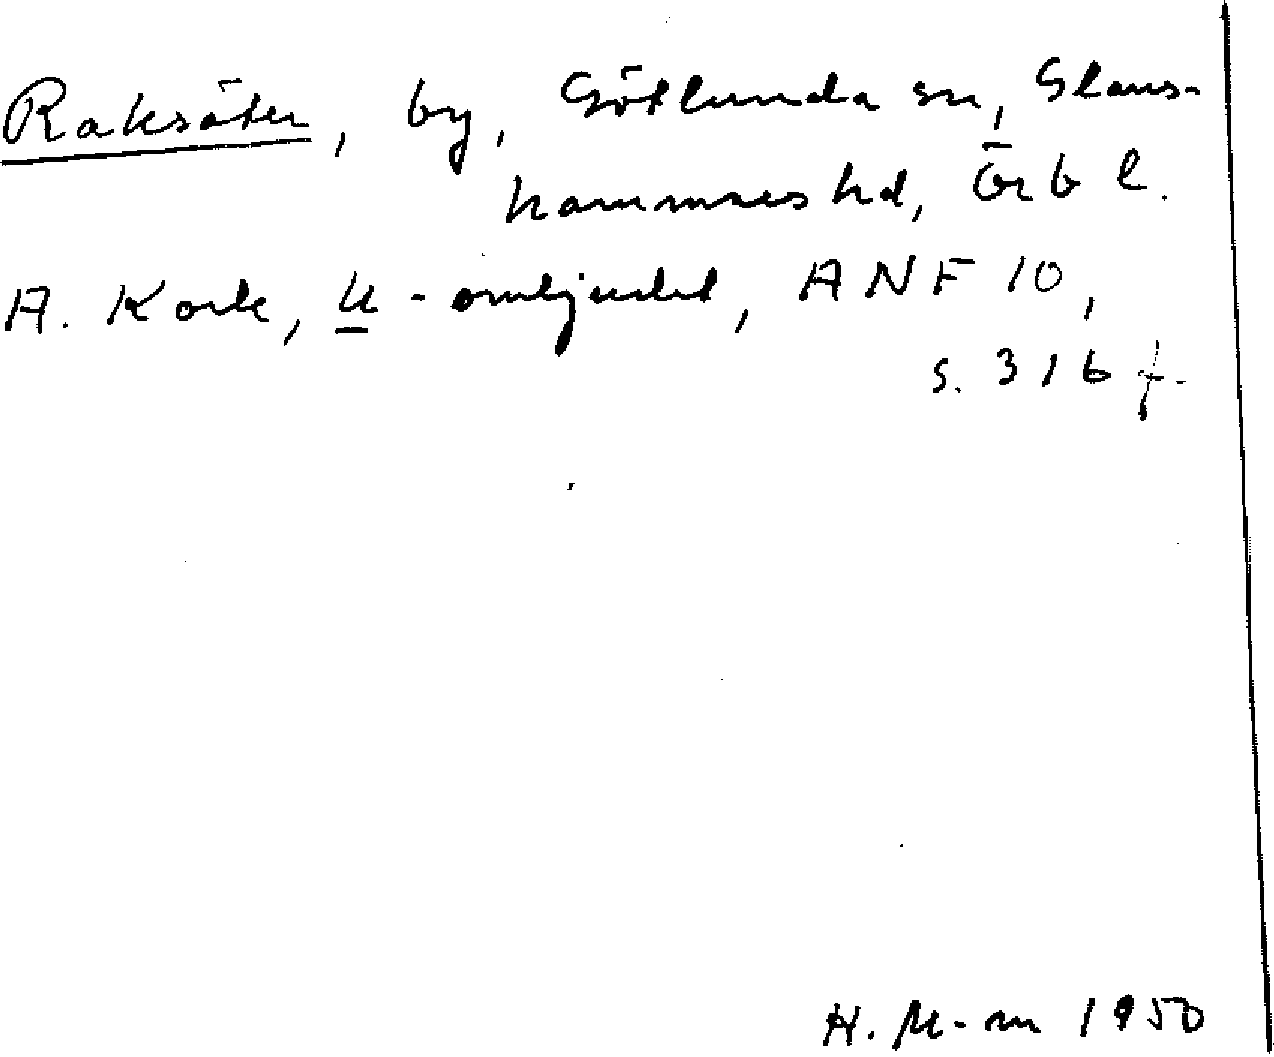 Raksäter, by, Götlunda sn, Glans-
hammars hd, Örb l.
A. Kock, u-omljudet, ANF 10,
s. 316 f.
H. M-m 1950